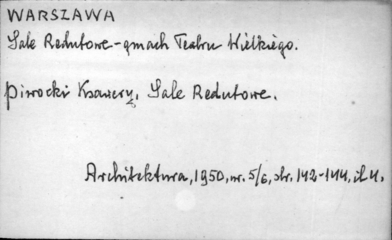 WARSZAWA
Sale Redutowe - gmach Teatru Wielkiego.
Piwocki Ksawery, Sale Redutowe.
Architektura, 1950, nr. 5/6, str. 142-144, il 4.